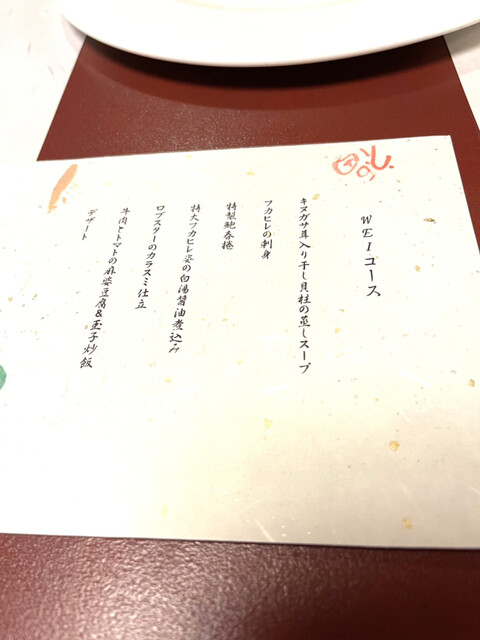 WEIコース
キヌガサ茸入り干し貝柱の蒸しスープ
フカヒレの刺身
特製鮑春捲
特大フカヒレ姿の白湯醤油煮込み
ロブスターのカラスミ仕立
牛肉とトマトの麻婆豆腐&玉子炒飯
デザート